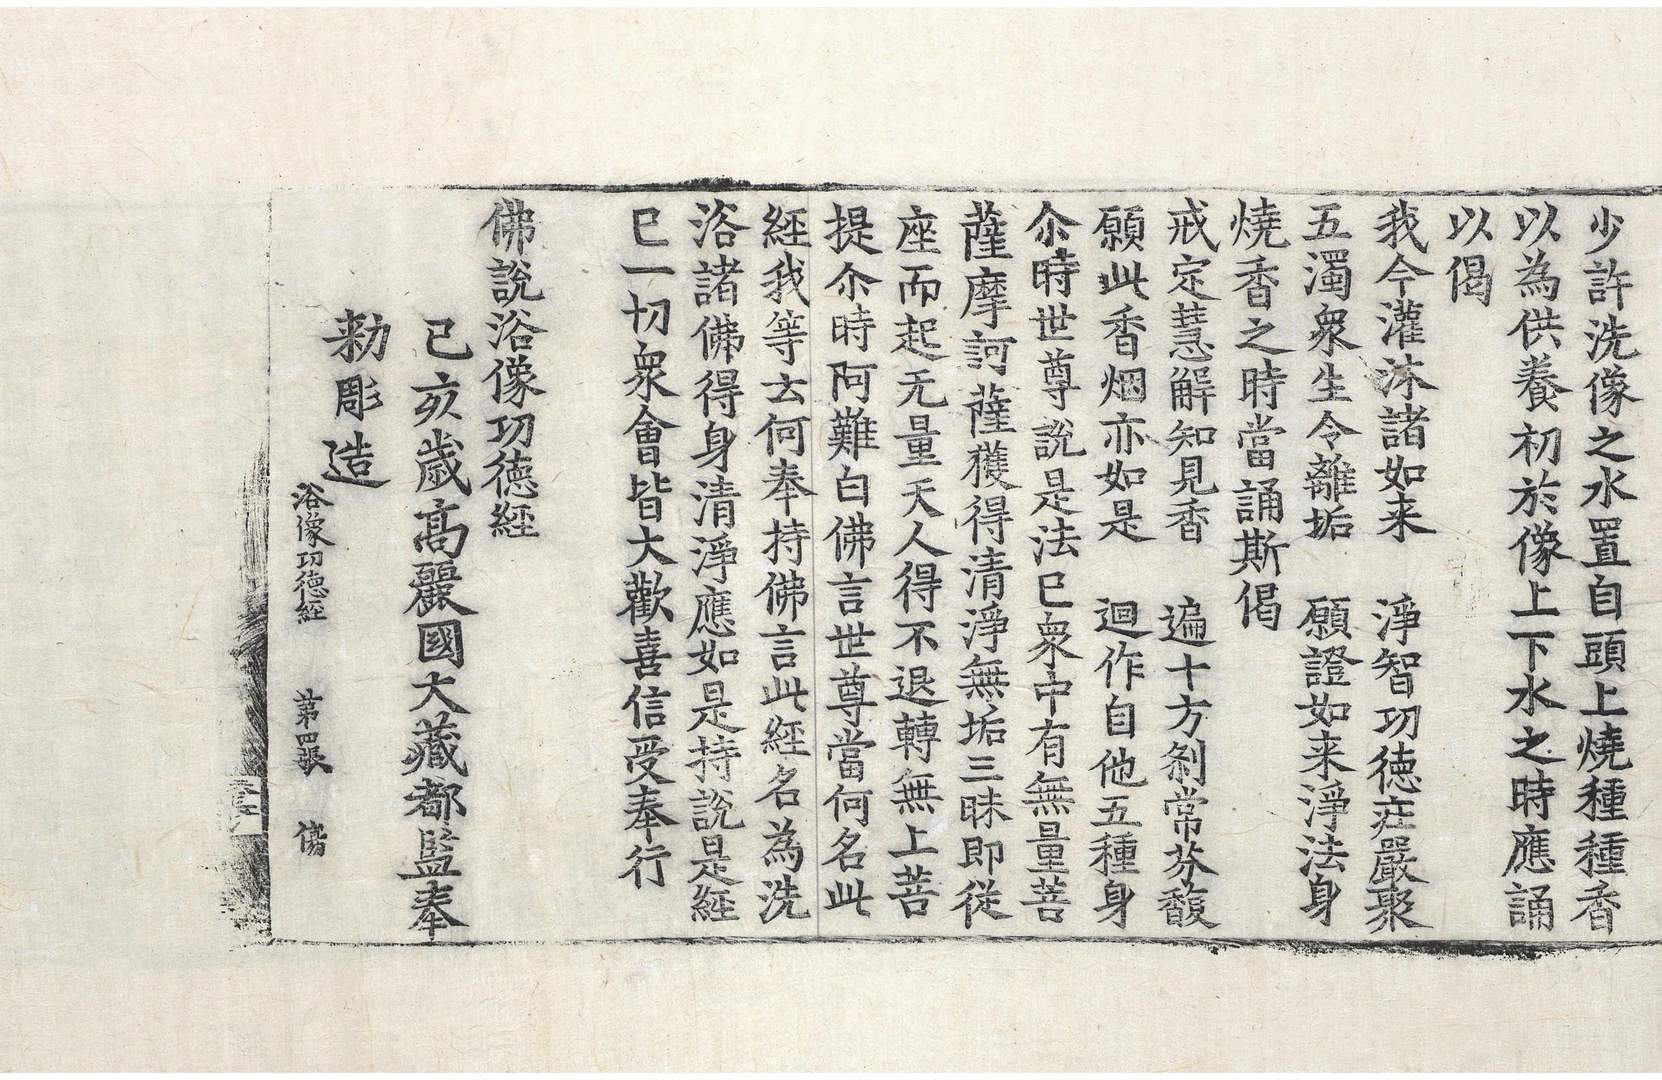 少許洗像之水置自頭上燒種種香
以為供養初於像上下水之時應誦
以偈
我今灌沐諸如来　淨智功德莊嚴聚
五濁衆生令離垢　願證如来淨法身
燒香之時當誦斯偈
戒定慧解知見香　遍十方剎常芬馥
願此香烟亦如是　迴作自他五種身
尒時世尊說是法已衆中有無量菩
薩摩訶薩獲得清淨無垢三昧即從
座而起无量天人得不退轉無上菩
提尒時阿難白佛言世尊當何名此
經我等云何奉持佛言此經名為洗
浴諸佛得身清淨應如是持說是經
已一切衆會皆大歡喜信受奉行
佛說浴像功德經
己亥歲高麗國大藏都監奉
勑彫造
浴像功德經　第四張